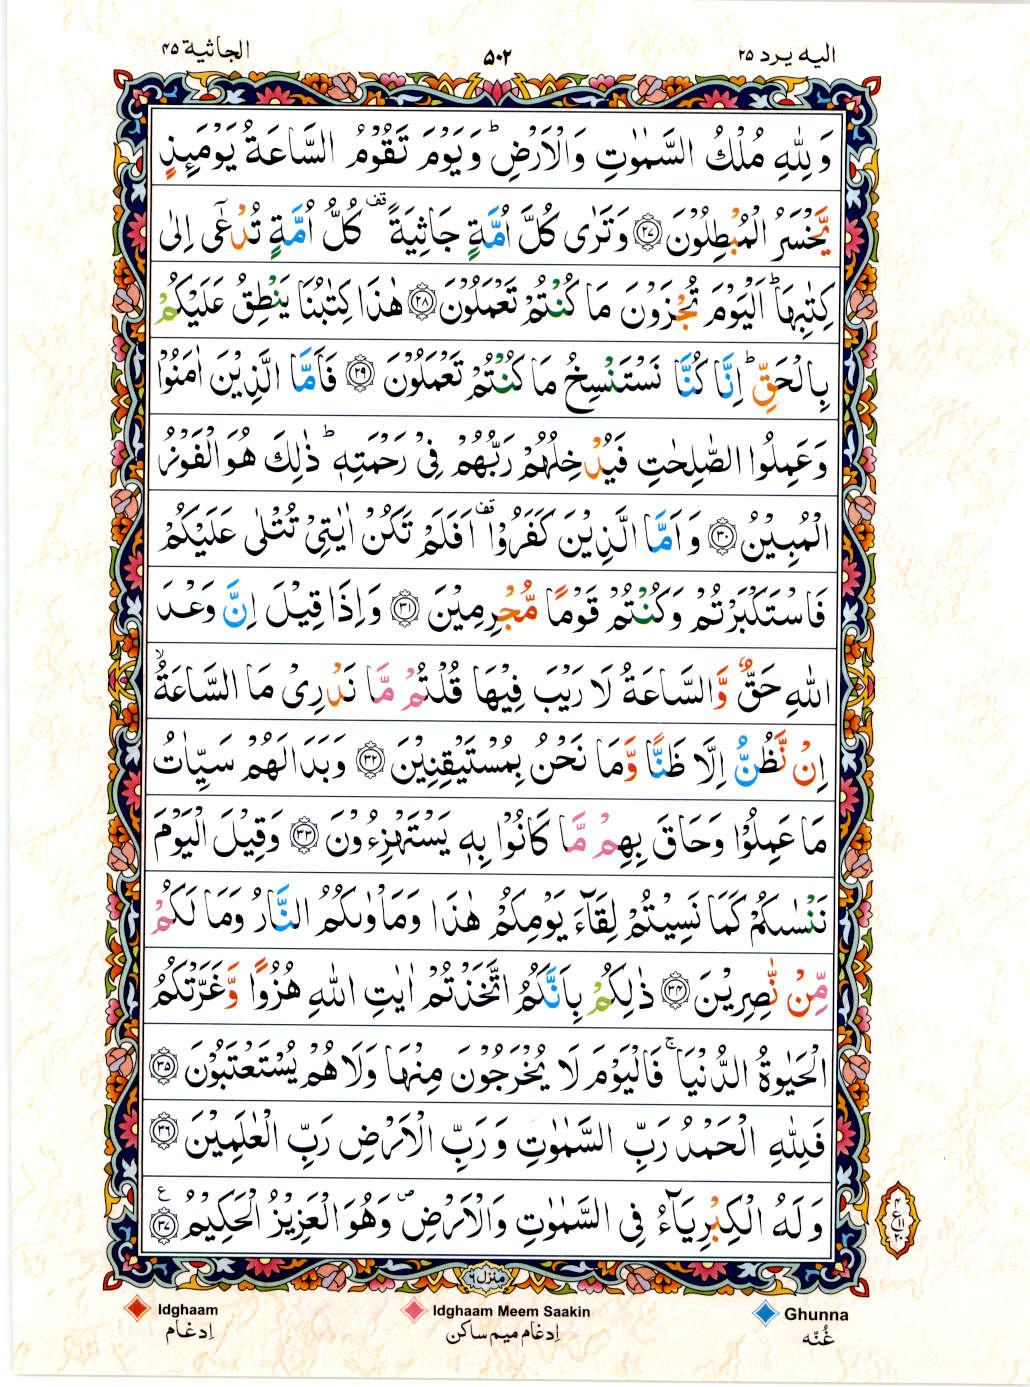 الجاثية ٤٥ ٥٠٢ اليه يرد ٢٥
وَلِلّٰهِ مُلْكُ السَّمٰوٰتِ وَالْاَرْضِ ؕ وَيَوْمَ تَقُوْمُ السَّاعَةُ يَوْمَىِٕذٍ
يَّخْسَرُ الْمُبْطِلُوْنَ ﴿۲۷﴾ وَتَرٰى كُلَّ اُمَّةٍ جَاثِيَةً قف كُلُّ اُمَّةٍ تُدْعٰۤى اِلٰى
كِتٰبِهَا ؕ اَلْيَوْمَ تُجْزَوْنَ مَا كُنْتُمْ تَعْمَلُوْنَ ﴿۲۸﴾ هٰذَا كِتٰبُنَا يَنْطِقُ عَلَيْكُمْ
بِالْحَقِّ ؕ اِنَّا كُنَّا نَسْتَنْسِخُ مَا كُنْتُمْ تَعْمَلُوْنَ ﴿۲۹﴾ فَاَمَّا الَّذِيْنَ اٰمَنُوْا
وَعَمِلُوا الصّٰلِحٰتِ فَيُدْخِلُهُمْ رَبُّهُمْ فِىْ رَحْمَتِهٖ ؕ ذٰلِكَ هُوَ الْفَوْزُ
الْمُبِيْنُ ﴿۳۰﴾ وَاَمَّا الَّذِيْنَ كَفَرُوْا قف اَفَلَمْ تَكُنْ اٰيٰتِىْ تُتْلٰى عَلَيْكُمْ
فَاسْتَكْبَرْتُمْ وَكُنْتُمْ قَوْمًا مُّجْرِمِيْنَ ﴿۳۱﴾ وَاِذَا قِيْلَ اِنَّ وَعْدَ
اللّٰهِ حَقٌّ وَّالسَّاعَةُ لَا رَيْبَ فِيْهَا قُلْتُمْ مَّا نَدْرِىْ مَا السَّاعَةُ ۙ
اِنْ نَّظُنُّ اِلَّا ظَنًّا وَّمَا نَحْنُ بِمُسْتَيْقِنِيْنَ ﴿۳۲﴾ وَبَدَا لَهُمْ سَيِّاٰتُ
مَا عَمِلُوْا وَحَاقَ بِهِمْ مَّا كَانُوْا بِهٖ يَسْتَهْزِءُوْنَ ﴿۳۳﴾ وَقِيْلَ الْيَوْمَ
نَنْسٰىكُمْ كَمَا نَسِيْتُمْ لِقَآءَ يَوْمِكُمْ هٰذَا وَمَاْوٰىكُمُ النَّارُ وَمَا لَكُمْ
مِّنْ نّٰصِرِيْنَ ﴿۳۴﴾ ذٰلِكُمْ بِاَنَّكُمُ اتَّخَذْتُمْ اٰيٰتِ اللّٰهِ هُزُوًا وَّغَرَّتْكُمُ
الْحَيٰوةُ الدُّنْيَا ۚ فَالْيَوْمَ لَا يُخْرَجُوْنَ مِنْهَا وَلَا هُمْ يُسْتَعْتَبُوْنَ ﴿۳۵﴾
فَلِلّٰهِ الْحَمْدُ رَبِّ السَّمٰوٰتِ وَرَبِّ الْاَرْضِ رَبِّ الْعٰلَمِيْنَ ﴿۳۶﴾
وَلَهُ الْكِبْرِيَآءُ فِى السَّمٰوٰتِ وَالْاَرْضِ ص وَهُوَ الْعَزِيْزُ الْحَكِيْمُ ﴿۳۷﴾ ع
منزل ٦
Idghaam Idghaam Meem Saakin Ghunna
اِدغام اِدغام میم ساکن غُنّه